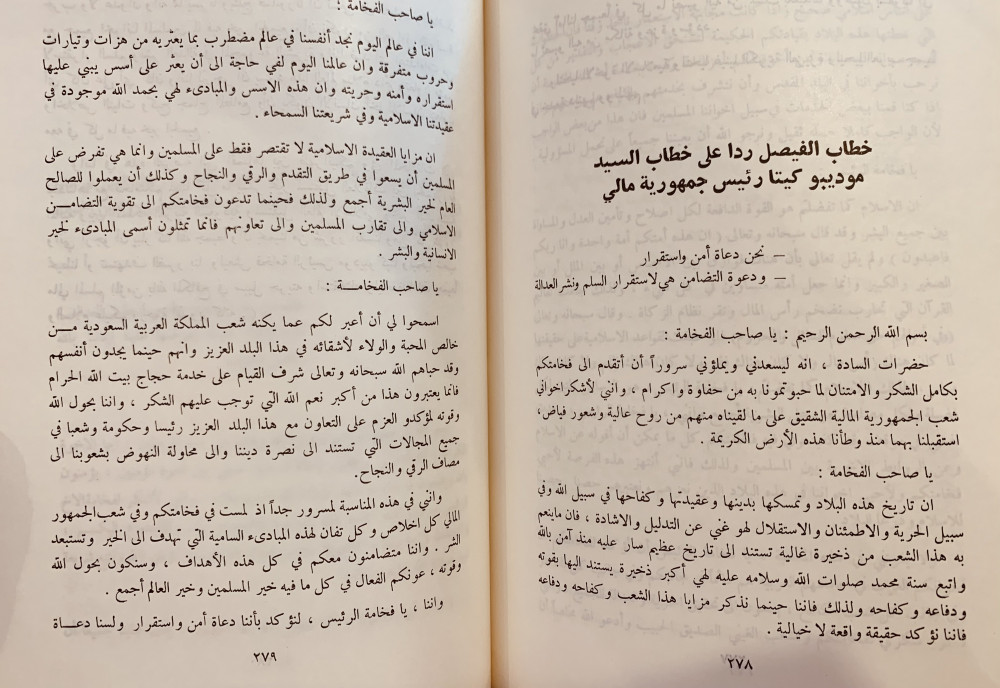 خطاب الفيصل ردا على خطاب السيد
موديبو كيتا رئيس جمهورية مالي
— نحن دعاة أمن واستقرار
— ودعوة التضامن هي لاستقرار السلم ونشر العدالة
بسم الله الرحمن الرحيم : يا صاحب الفخامة :
حضرات السادة ، انه ليسعدني ويملؤني سروراً أن أتقدم الى فخامتكم
بكامل الشكر و الامتنان لما حبوتمونا به من حفاوة و اكرام ، واني لأشكر اخواني
شعب الجمهورية المالية الشقيق على ما لقيناه منهم من روح عالية وشعور فياض،
استقبلنا بهما منذ وطأنا هذه الأرض الكريمة .
يا صاحب الفخامة :
ان تاريخ هذه البلاد وتمسكها بدينها وعقيدتها و كفاحها في سبيل الله وفي
سبيل الحرية و الاطمئنان والاستقلال لهو غني عن التدليل و الاشادة ، فان ماينعم
به هذا الشعب من ذخيرة غالية تستند الى تاريخ عظيم سار عليه منذ آمن بالله
و اتبع سنة محمد صلوات الله وسلامه عليه لهي أكبر ذخيرة يستند اليها بقوته
ودفاعه و كفاحه ولذلك فاننا حينما نذكر مزايا هذا الشعب و كفاحه ودفاعه
فاننا نؤكد حقيقة واقعة لا خيالية .
٢٧٨
يا صاحب الفخامة :
اننا في عالم اليوم نجد أنفسنا في عالم مضطرب بما يعتريه من هزات وتيارات
وحروب متفرقة وان عالمنا اليوم لفي حاجة الى أن يعثر على أسس يبني عليها
استقراره وأمنه وحريته وان هذه الاسس والمبادىء لهي بحمد الله موجودة في
عقيدتنا الاسلامية وفي شريعتنا السمحاء .
ان مزايا العقيدة الاسلامية لا تقتصر فقط على المسلمين وانما هي تفرض على
المسلمين أن يسعوا في طريق التقدم والرقي والنجاح و كذلك أن يعملوا للصالح
العام لخير البشرية أجمع ولذلك فحينما تدعون فخامتكم الى تقوية التضامـــن
الاسلامي والى تقارب المسلمين والى تعاونهم فانما تمثلون أسمى المبادىء لخير
الانسانية والبشر .
يا صاحب الفخامـــة :
اسمحوا لي أن أعبر لكم عما يكنه شعب المملكة العربية السعودية مـــن
خالص المحبة والولاء لأشقائه في هذا البلد العزيز وانهم حينما يجدون أنفسهم
وقد حباهم الله سبحانه وتعالى شرف القيام على خدمة حجاج بيت الله الحرام
فانما يعتبرون هذا من أكبر نعم الله التي توجب عليهم الشكر ، واننا بحول الله
وقوته لمؤكدو العزم على التعاون مع هذا البلد العزيز رئيسا وحكومة وشعبا في
جميع المجالات التي تستند الى نصرة ديننا والى محاولة النهوض بشعوبنا الى
مصاف الرقي والنجاح.
واني في هذه المناسبة لمسرور جداً اذ لمست في فخامتكم وفي شعب الجمهور
المالي كل اخلاص و كل تفان لهذه المبادىء السامية التي تهدف الى الخير وتستبعد
الشر . واننا متضامنون معكم في كل هذه الأهداف ، وسنكون بحول الله
وقوته ، عونكم الفعال في كل ما فيه خير المسلمين وخير العالم أجمع .
واننا ، يا فخامة الرئيس ، لنؤكد بأننا دعاة أمن واستقرار ولسنا دعـــاة
٢٧٩